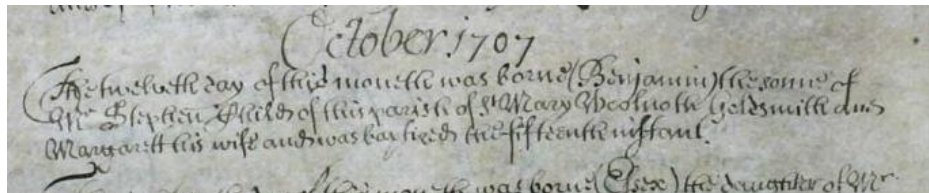 October 1707
The twelveth day of this moneth was borne (Benjamin) the sonne of
Mr. Stephen Child of this parish of St Mary Woolnoth Goldsmith and
Margarett his wife and was baptized the fifteenth instant.
moneth was borne (Essex) the daughter of Mr.